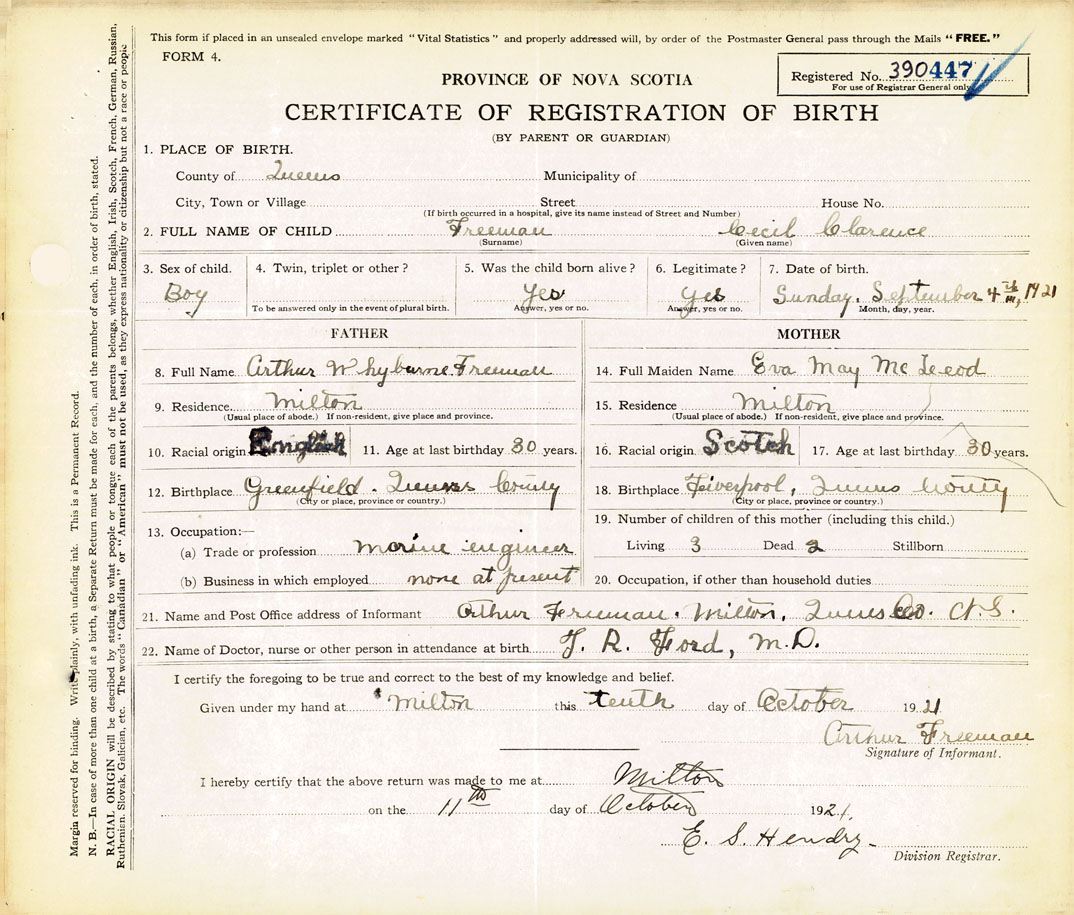 This form if placed in an unsealed envelope marked "Vital Statistics" and properly addressed will, by order of the Postmaster General pass through the Mails "FREE."
FORM 4.
Registered No. 390447
For use of Registrar General only
PROVINCE OF NOVA SCOTIA
CERTIFICATE OF REGISTRATION OF BIRTH
(BY PARENT OR GUARDIAN)
1. PLACE OF BIRTH.
County of Queens Municipality of
City, Town or Village Street House No.
(If birth occurred in a hospital, give its name instead of Street and Number)
2. FULL NAME OF CHILD Freeman Cecil Clarence
(Surname) (Given name)
3. Sex of child. 4. Twin, triplet or other? 5. Was the child born alive? 6. Legitimate? 7. Date of birth.
Boy Yes Yes Sunday, September 4th, 1921
To be answered only in the event of plural birth. Answer, yes or no. Answer, yes or no. Month, day, year.
FATHER
8. Full Name Arthur Whyburne Freeman
9. Residence Milton
(Usual place of abode.) If non-resident, give place and province.
10. Racial origin English 11. Age at last birthday 30 years.
12. Birthplace Greenfield. Queens County
(City or place, province or country.)
13. Occupation:—
(a) Trade or profession marine engineer
(b) Business in which employed none at present
MOTHER
14. Full Maiden Name Eva May McLeod
15. Residence Milton
(Usual place of abode.) If non-resident, give place and province.
16. Racial origin Scotch 17. Age at last birthday 30 years.
18. Birthplace Liverpool, Queens County
(City or place, province or country.)
19. Number of children of this mother (including this child.)
Living 3 Dead 2 Stillborn
20. Occupation, if other than household duties
21. Name and Post Office address of Informant Arthur Freeman. Milton, Queens Co. N.S.
22. Name of Doctor, nurse or other person in attendance at birth J. R. Ford, M.D.
I certify the foregoing to be true and correct to the best of my knowledge and belief.
Given under my hand at Milton this tenth day of October 1921
Arthur Freeman
Signature of Informant.
I hereby certify that the above return was made to me at Milton
on the 11th day of October 1921.
E. S. Hendry
Division Registrar.
Margin reserved for binding. Write plainly, with unfading ink. This is a Permanent Record.
N. B.—In case of more than one child at a birth, a Separate Return must be made for each, and the number of each, in order of birth, stated.
RACIAL ORIGIN will be described by stating to what people or tongue each of the parents belongs, whether English, Irish, Scotch, French, German, Russian,
Ruthenian, Slovak, Galician, etc. The words "Canadian" or "American" must not be used, as they express nationality or citizenship but not a race or people